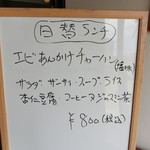 日替ランチ
エビあんかけチャーハン
サラダ ザーサイ スープ ライス
杏仁豆腐 コーヒー又ジャスミン茶
¥800(税込)